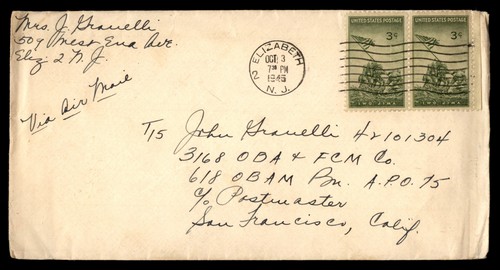 Mrs. J. Granelli
509 West End Ave.
Eliz 2 N. J.
Via Air Mail
ELIZABETH
2
OCT 3
7 30 PM
1945
N. J.
UNITED STATES POSTAGE
3¢
IWO JIMA
UNITED STATES POSTAGE
3¢
IWO JIMA
T/5 John Granelli 42101304
3168 OBA & FCM Co.
618 OBAM Bn. A.P.O. 75
c/o Postmaster
San Francisco, Calif.